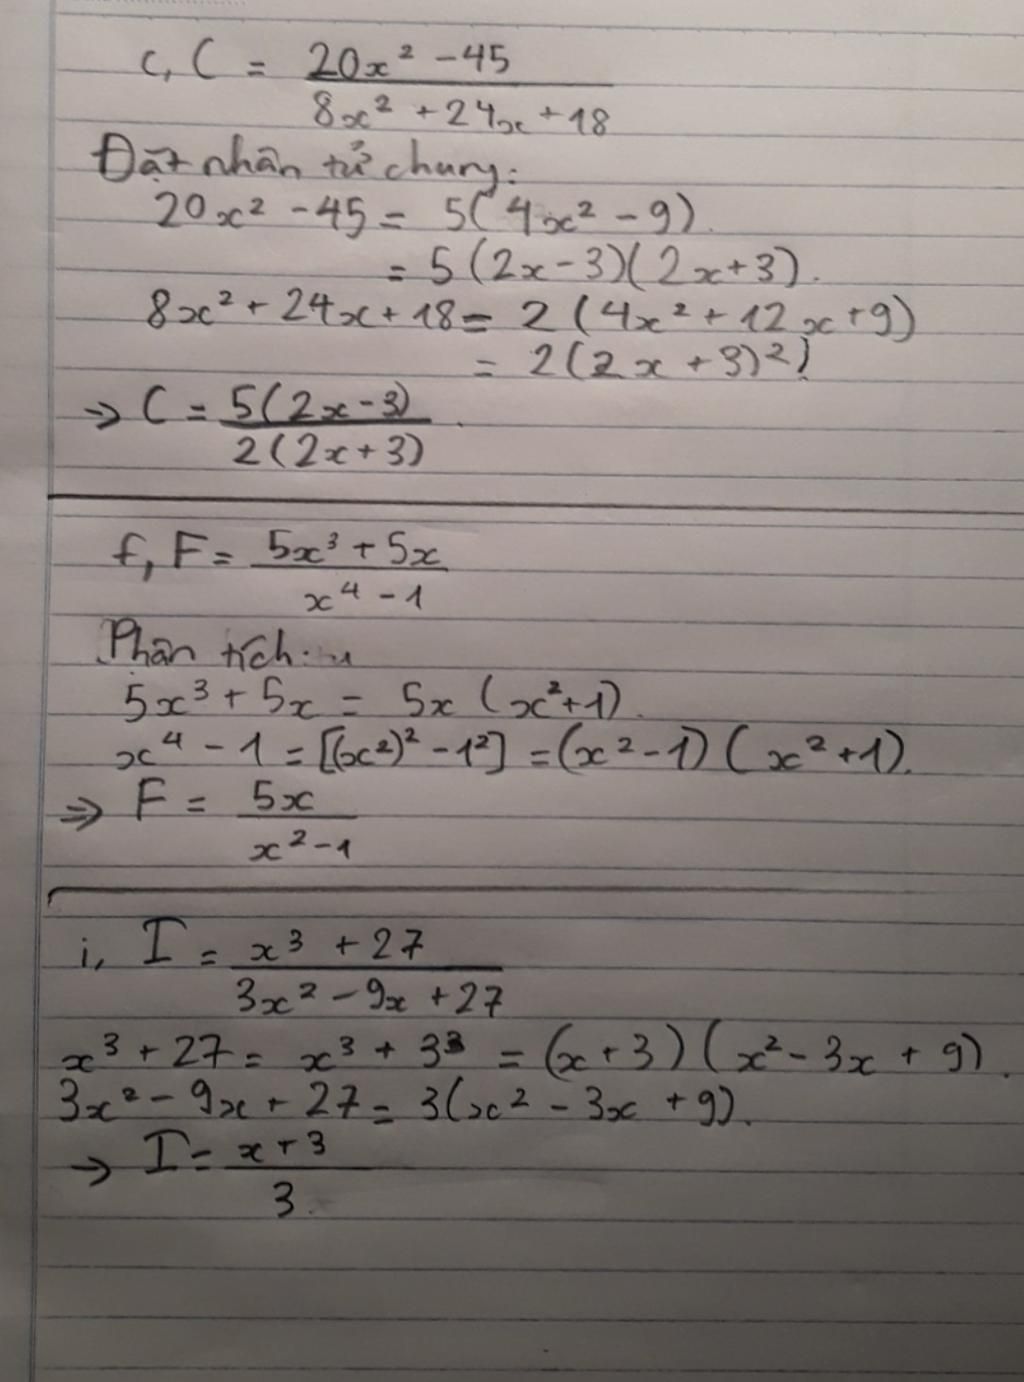 c, C = (20x² - 45)/(8x² + 24x + 18)
Đặt nhân tử chung:
20x² - 45 = 5(4x² - 9).
= 5(2x - 3)(2x + 3).
8x² + 24x + 18 = 2(4x² + 12x + 9)
= 2(2x + 3)²)
=> C = 5(2x - 3)/2(2x + 3).
f, F = (5x³ + 5x)/(x⁴ - 1)
Phân tích:
5x³ + 5x = 5x(x² + 1).
x⁴ - 1 = [(x²)² - 1²] = (x² - 1)(x² + 1).
=> F = 5x/(x² - 1)
i, I = (x³ + 27)/(3x² - 9x + 27)
x³ + 27 = x³ + 3³ = (x + 3)(x² - 3x + 9).
3x² - 9x + 27 = 3(x² - 3x + 9).
-> I = (x + 3)/3.